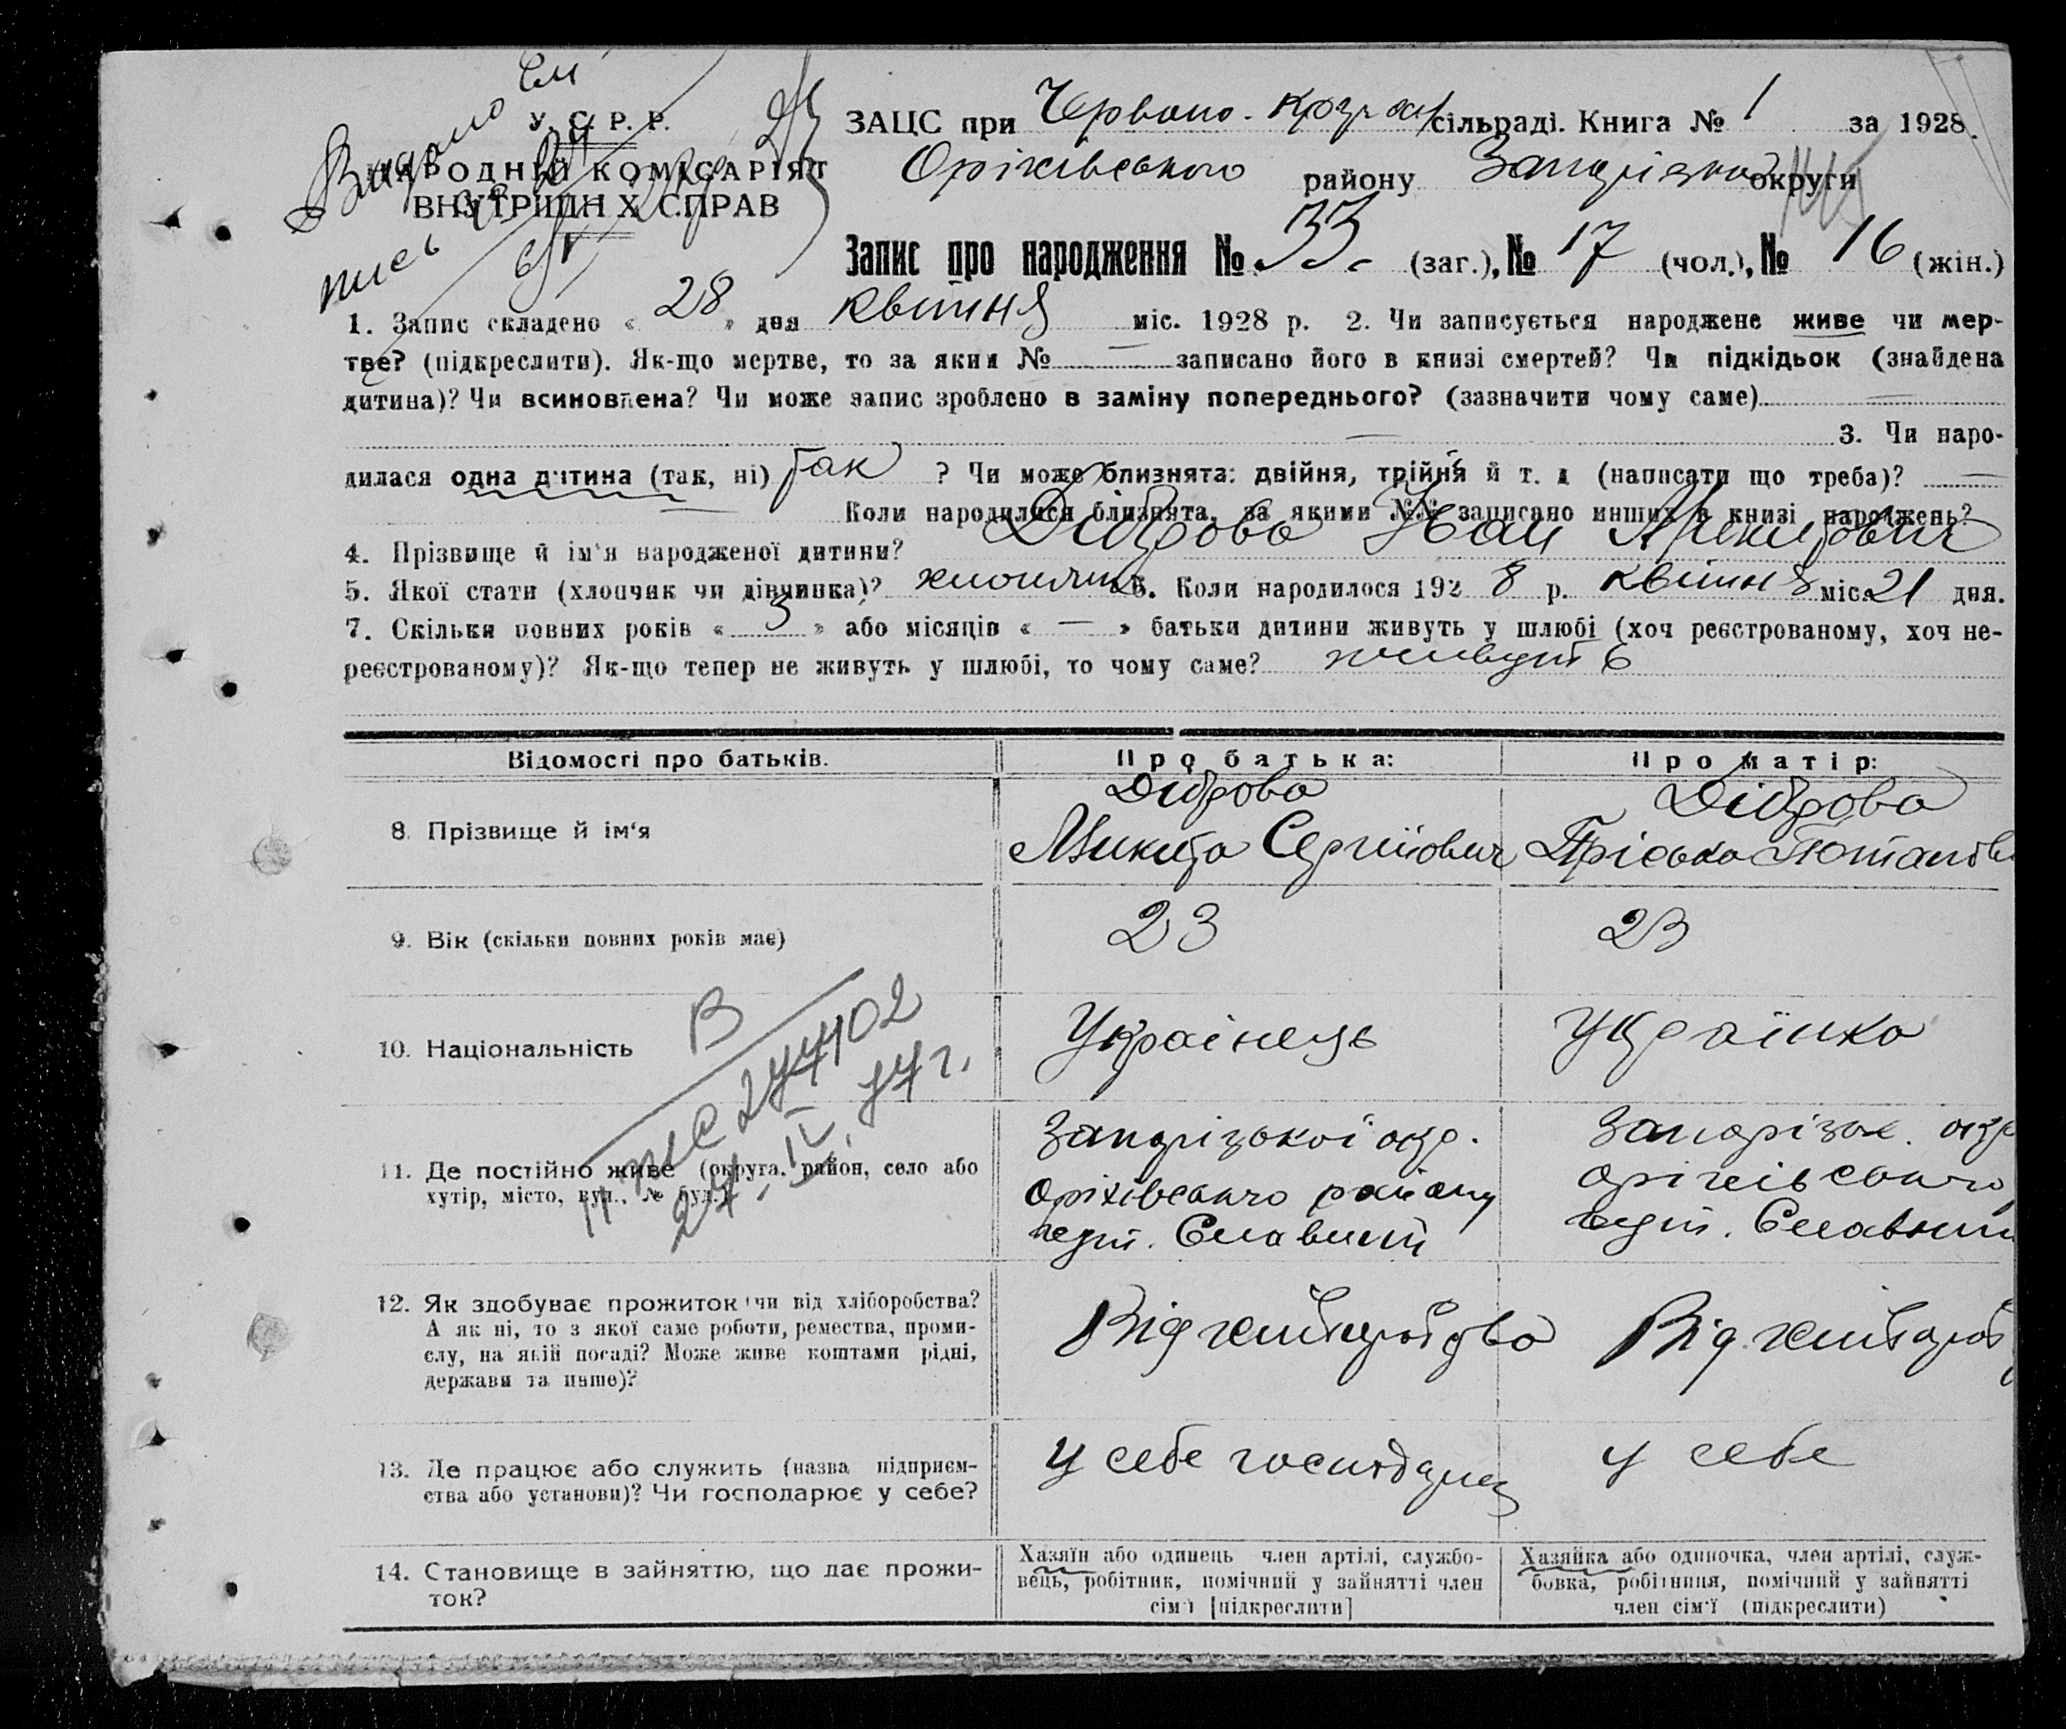 Видано
У. С. Р. Р.
НАРОДНІЙ КОМІСАРІЯТ
ВНУТРІШНІХ СПРАВ
ЗАЦС при Червоно. сільраді. Книга № 1 за 1928.
Оріхівського району Запорізької округи
Запис про народження № 33. (заг.), № 17 (чол.), № 16 (жін.)
1. Запис складено « 28 » дня квітня міс. 1928 р. 2. Чи записується народжене живе чи мер-
тве? (підкреслити). Як-що мертве, то за яким № — записано його в книзі смертей? Чи підкідьок (знайдена
дитина)? Чи всиновлена? Чи може запис зроблено в заміну попереднього? (зазначити чому саме) —
— 3. Чи наро-
дилася одна дитина (так, ні) так ? Чи може близнята: двійня, трійня й т. д (написати що треба)? —
— Коли народилися близнята, за якими №№ записано инших в книзі народжень?
4. Прізвище й ім'я народженої дитини? Діброва Іван Микитович
5. Якої стати (хлопчик чи дівчинка)? хлопчик 6. Коли народилося 192 8 р. квітня міс. 21 дня.
7. Скільки повних років « 3 » або місяців « — » батьки дитини живуть у шлюбі (хоч реєстрованому, хоч не-
реєстрованому)? Як-що тепер не живуть у шлюбі, то чому саме? живуть
Відомості про батьків. Про батька: Про матір:
8. Прізвище й ім'я Діброва Микита Сергійович Діброва Пріська
9. Вік (скільки повних років має) 23 23
10. Національність Українець Українка
В
277102
27. IV. 77 г.
11. Де постійно живе (округа, район, село або
хутір, місто, вул., № буд.)
Запорізької окр.
Оріхівського району
хут. Славний
Запорізьк. окр
Оріхівського
хут. Славний
12. Як здобуває прожиток (чи від хліборобства?
А як ні, то з якої саме роботи, ремества, проми-
слу, на якій посаді? Може живе коштами рідні,
держави та инше)?
Від хліборобства Від хлібороб
13. Де працює або служить (назва підприєм-
ства або установи)? Чи господарює у себе?
У себе У себе
14. Становище в зайняттю, що дає прожи-
ток?
Хазяїн або одинець член артілі, службо-
вець, робітник, помічний у зайнятті член
сім'ї [підкреслити]
Хазяйка або одиночка, член артілі, служ-
бовка, робітниця, помічний у зайнятті
член сім'ї (підкреслити)